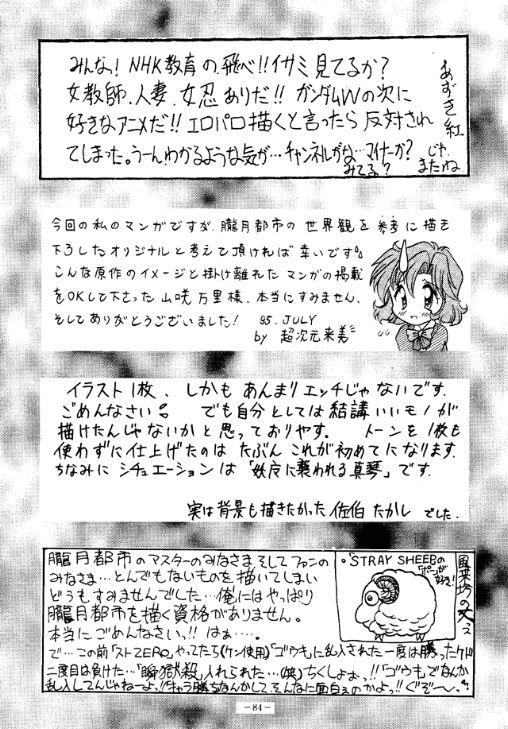 みんな!NHK教育の飛べ!!イサミ見てるか?
女教師、人妻、女忍ありだ!!ガンダムWの次に
好きなアニメだ!!エロパロ描くと言ったら反対され
てしまった。うーんわかるような気が…チャンネルがな…マイナーか?
みてる?
あずき紅
じゃ、
またね
今回の私のマンガですが、朧月都市の世界観を参考に描き
下ろしたオリジナルと考えて頂ければ幸いです。
こんな原作のイメージと掛け離れたマンガの掲載
をOKして下さった山咲万里様、本当にすみません、
そしてありがとうございました!
95. JULY
by 超次元来美
イラスト1枚、しかもあんまりエッチじゃないです。
ごめんなさい。でも自分としては結講いいモノが
描けたんじゃないかと思っておりやす。トーンを1枚も
使わずに仕上げたのはたぶんこれが初めてになります。
ちなみにシチュエーションは「妖に襲われる真琴」です。
実は背景も描きたかった佐伯たかしでした。
朧月都市のマスターのみなさまそしてファンの
みなさま…とんでもないものを描いてしまい
どうもすみませんでした…俺にはやっぱり
朧月都市を描く資格がありません。
本当にごめんなさい。!!はぁ…。
で…この前「ストZERO」やってたら(ケン使用)「ゴウキ」に乱入された一度は勝ったケド
二度目は負けた…「瞬獄殺」入れられた…(哭)ちくしょお!!「ゴウキ」でなんか
乱入してんじゃねーよ!!キャラ勝ちなんかしてそんなに面白ぇのかよっ!!ぐぞ〜
"STRAY SHEEBの
好き!
風来坊の
-84-